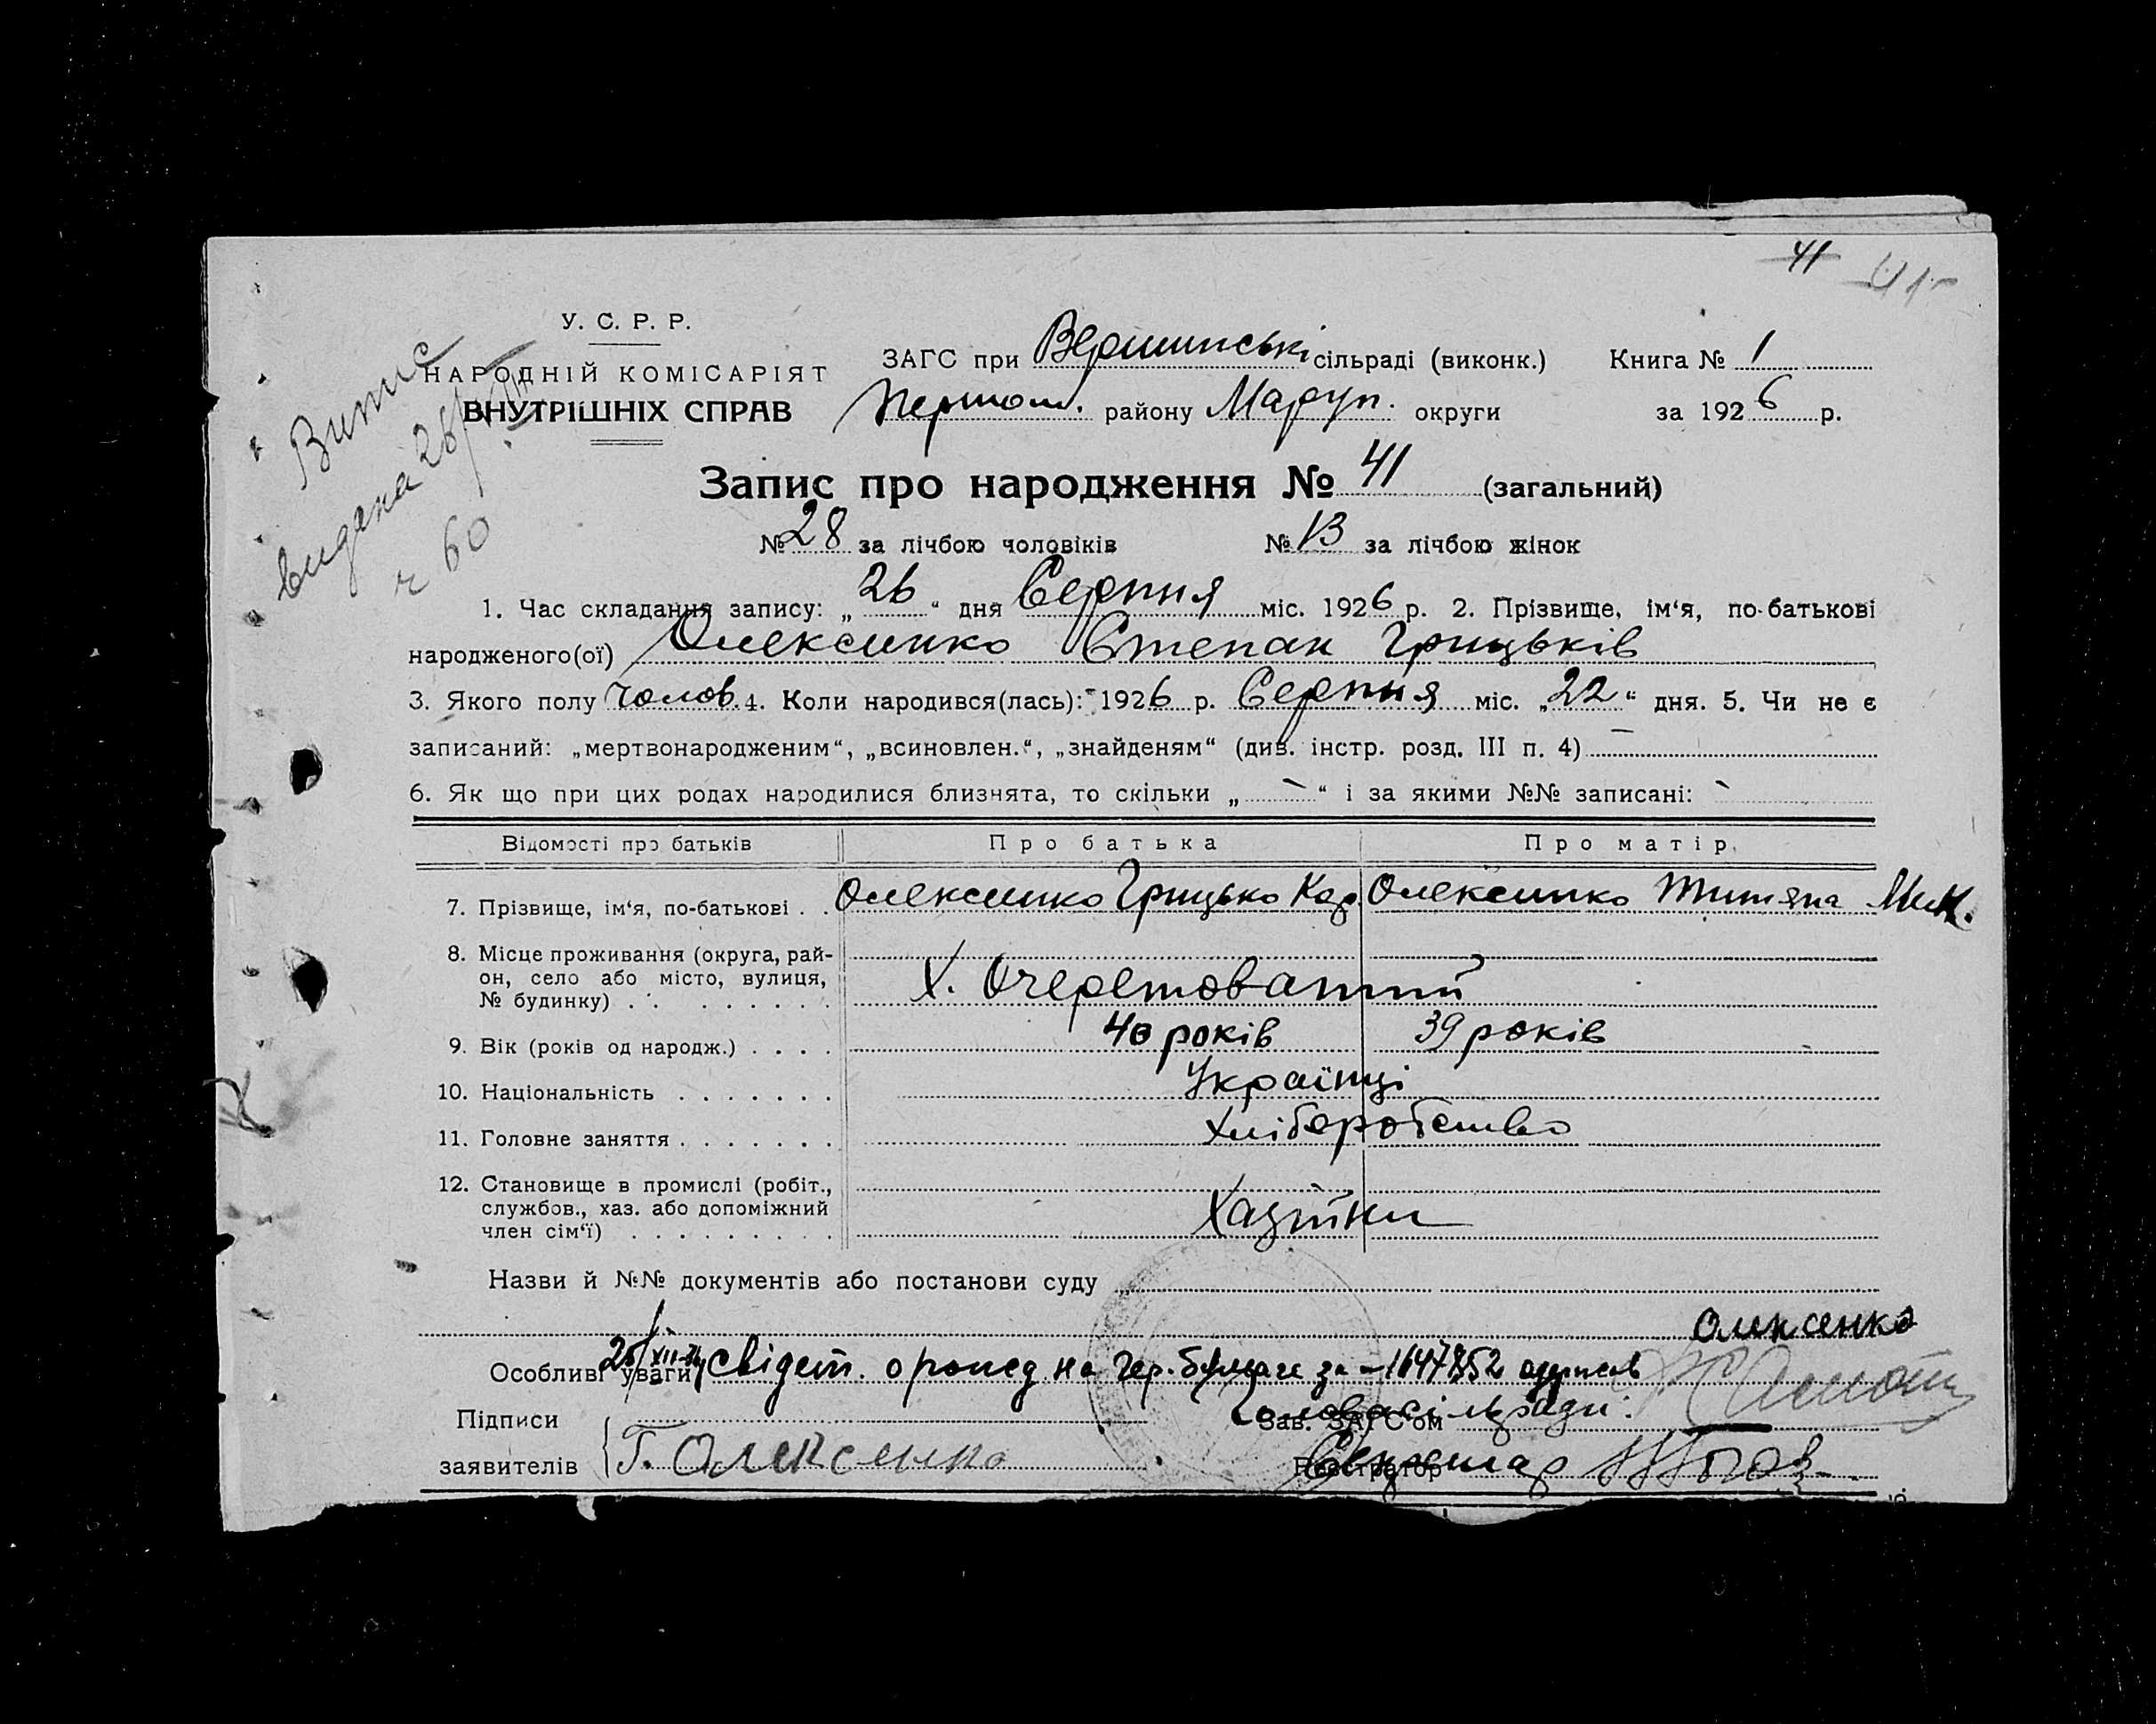 41 41
У. С. Р. Р.
НАРОДНІЙ КОМІСАРІЯТ
ВНУТРІШНІХ СПРАВ
Витис
видана 26/
60
ЗАГС при Вершинські сільраді (виконк.) Книга № 1
Першом. району Маруп. округи за 1926 р.
Запис про народження № 41 (загальний)
№ 28 за лічбою чоловіків № 13 за лічбою жінок
1. Час складання запису: „26“ дня Серпня міс. 1926 р. 2. Прізвище, ім‘я, по-батькові
народженого(ої) Олексинко Степан Грицьків
3. Якого полу Чолов. 4. Коли народився(лась): 1926 р. Серпня міс. „22“ дня. 5. Чи не є
записаний: „мертвонародженим“, „всиновлен.“, „знайденям“ (див. інстр. розд. III п. 4) —
6. Як що при цих родах народилися близнята, то скільки „-“ і за якими №№ записані: -
Відомості про батьків Про батька Про матір
7. Прізвище, ім‘я, по-батькові . . Олексинко Грицько Кар. Олексинко Титяна Мик.
8. Місце проживання (округа, рай-
он, село або місто, вулиця,
№ будинку) . . . . . . . . Х. Очеретоватий
9. Вік (років од народж.) . . . . 40 років 39 років
10. Національність . . . . . . . Українці
11. Головне заняття . . . . . . . Хліборобство
12. Становище в промислі (робіт.,
службов., хаз. або допоміжний
член сім‘ї) . . . . . . . . . Хазяїни
Назви й №№ документів або постанови суду
Олексенко
Особливі уваги 25/XII свідет. о рожд на гер. бумаге за – 1647852 одержав
Підписи Голова сільради.
Зав. ЗАГС‘ом
заявителів Г. Олексенко Секретар
Реєстратор